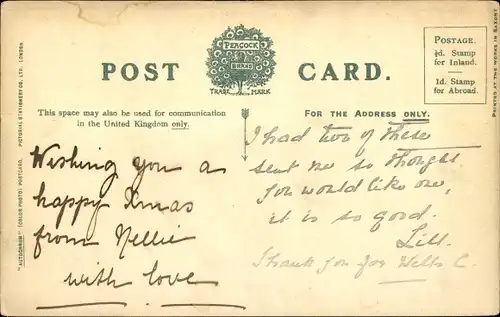 POST CARD.
PEACOCK
BRAND
TRADE MARK
POSTAGE.
½d. Stamp
for Inland.
1d. Stamp
for Abroad.
This space may also be used for communication
in the United Kingdom only.
FOR THE ADDRESS ONLY.
Wishing you a
happy Xmas
from Nellie
with love
I had two of these
sent me so thought
you would like one,
it is so good.
Lill.
Thank you for Wells C.
"AUTOCHROM" (COLOUR PHOTO) POSTCARD. PICTORIAL STATIONERY CO., LTD. LONDON.
PRINTED AT THE WORKS IN SAXONY